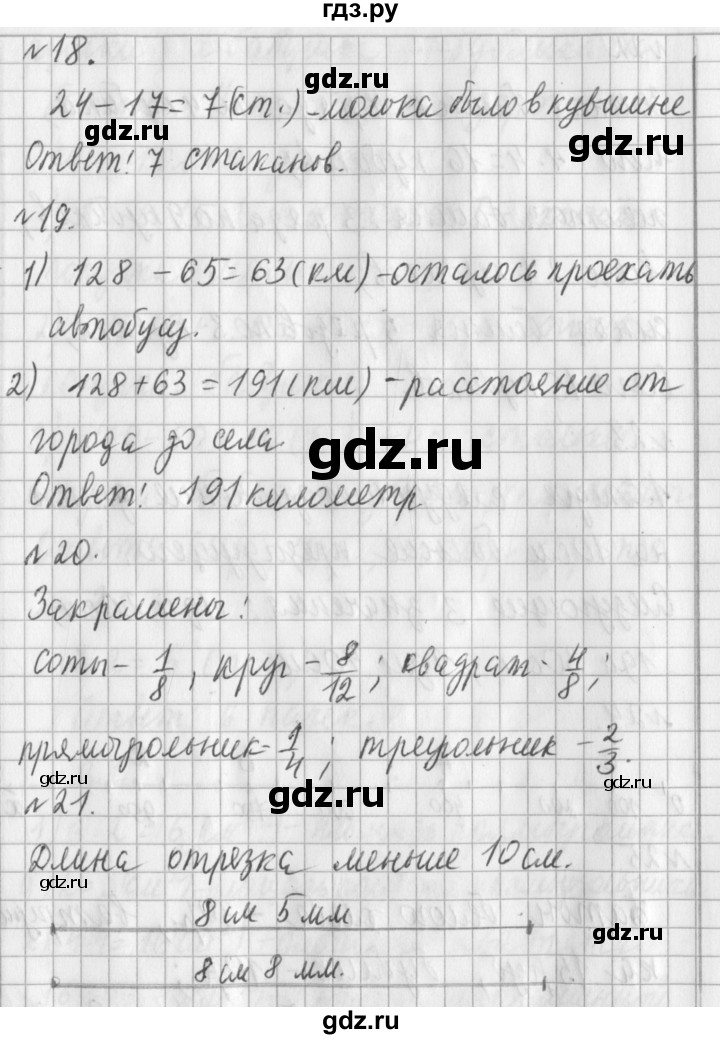 гдз.ру
№18.
24-17=7(ст.)-молока было в кувшине
Ответ! 7 стаканов.
№19.
1) 128 - 65 = 63(км)-осталось проехать
автобусу.
2) 128+63 = 191(км) - расстояние от
города до села
Ответ! 191 километр
№20.
Закрашены:
соты - 1/8, круг - 8/12; квадрат - 4/8;
прямоугольник - 1/4; треугольник - 2/3.
№21.
Длина отрезка меньше 10 см.
8 см 5 мм
8 см 8 мм.
gdz.ru
gdz.ru
gdz.ru
gdz.ru
gdz.ru
gdz.ru
gdz.ru
gdz.ru
gdz.ru
gdz.ru
gdz.ru
gdz.ru